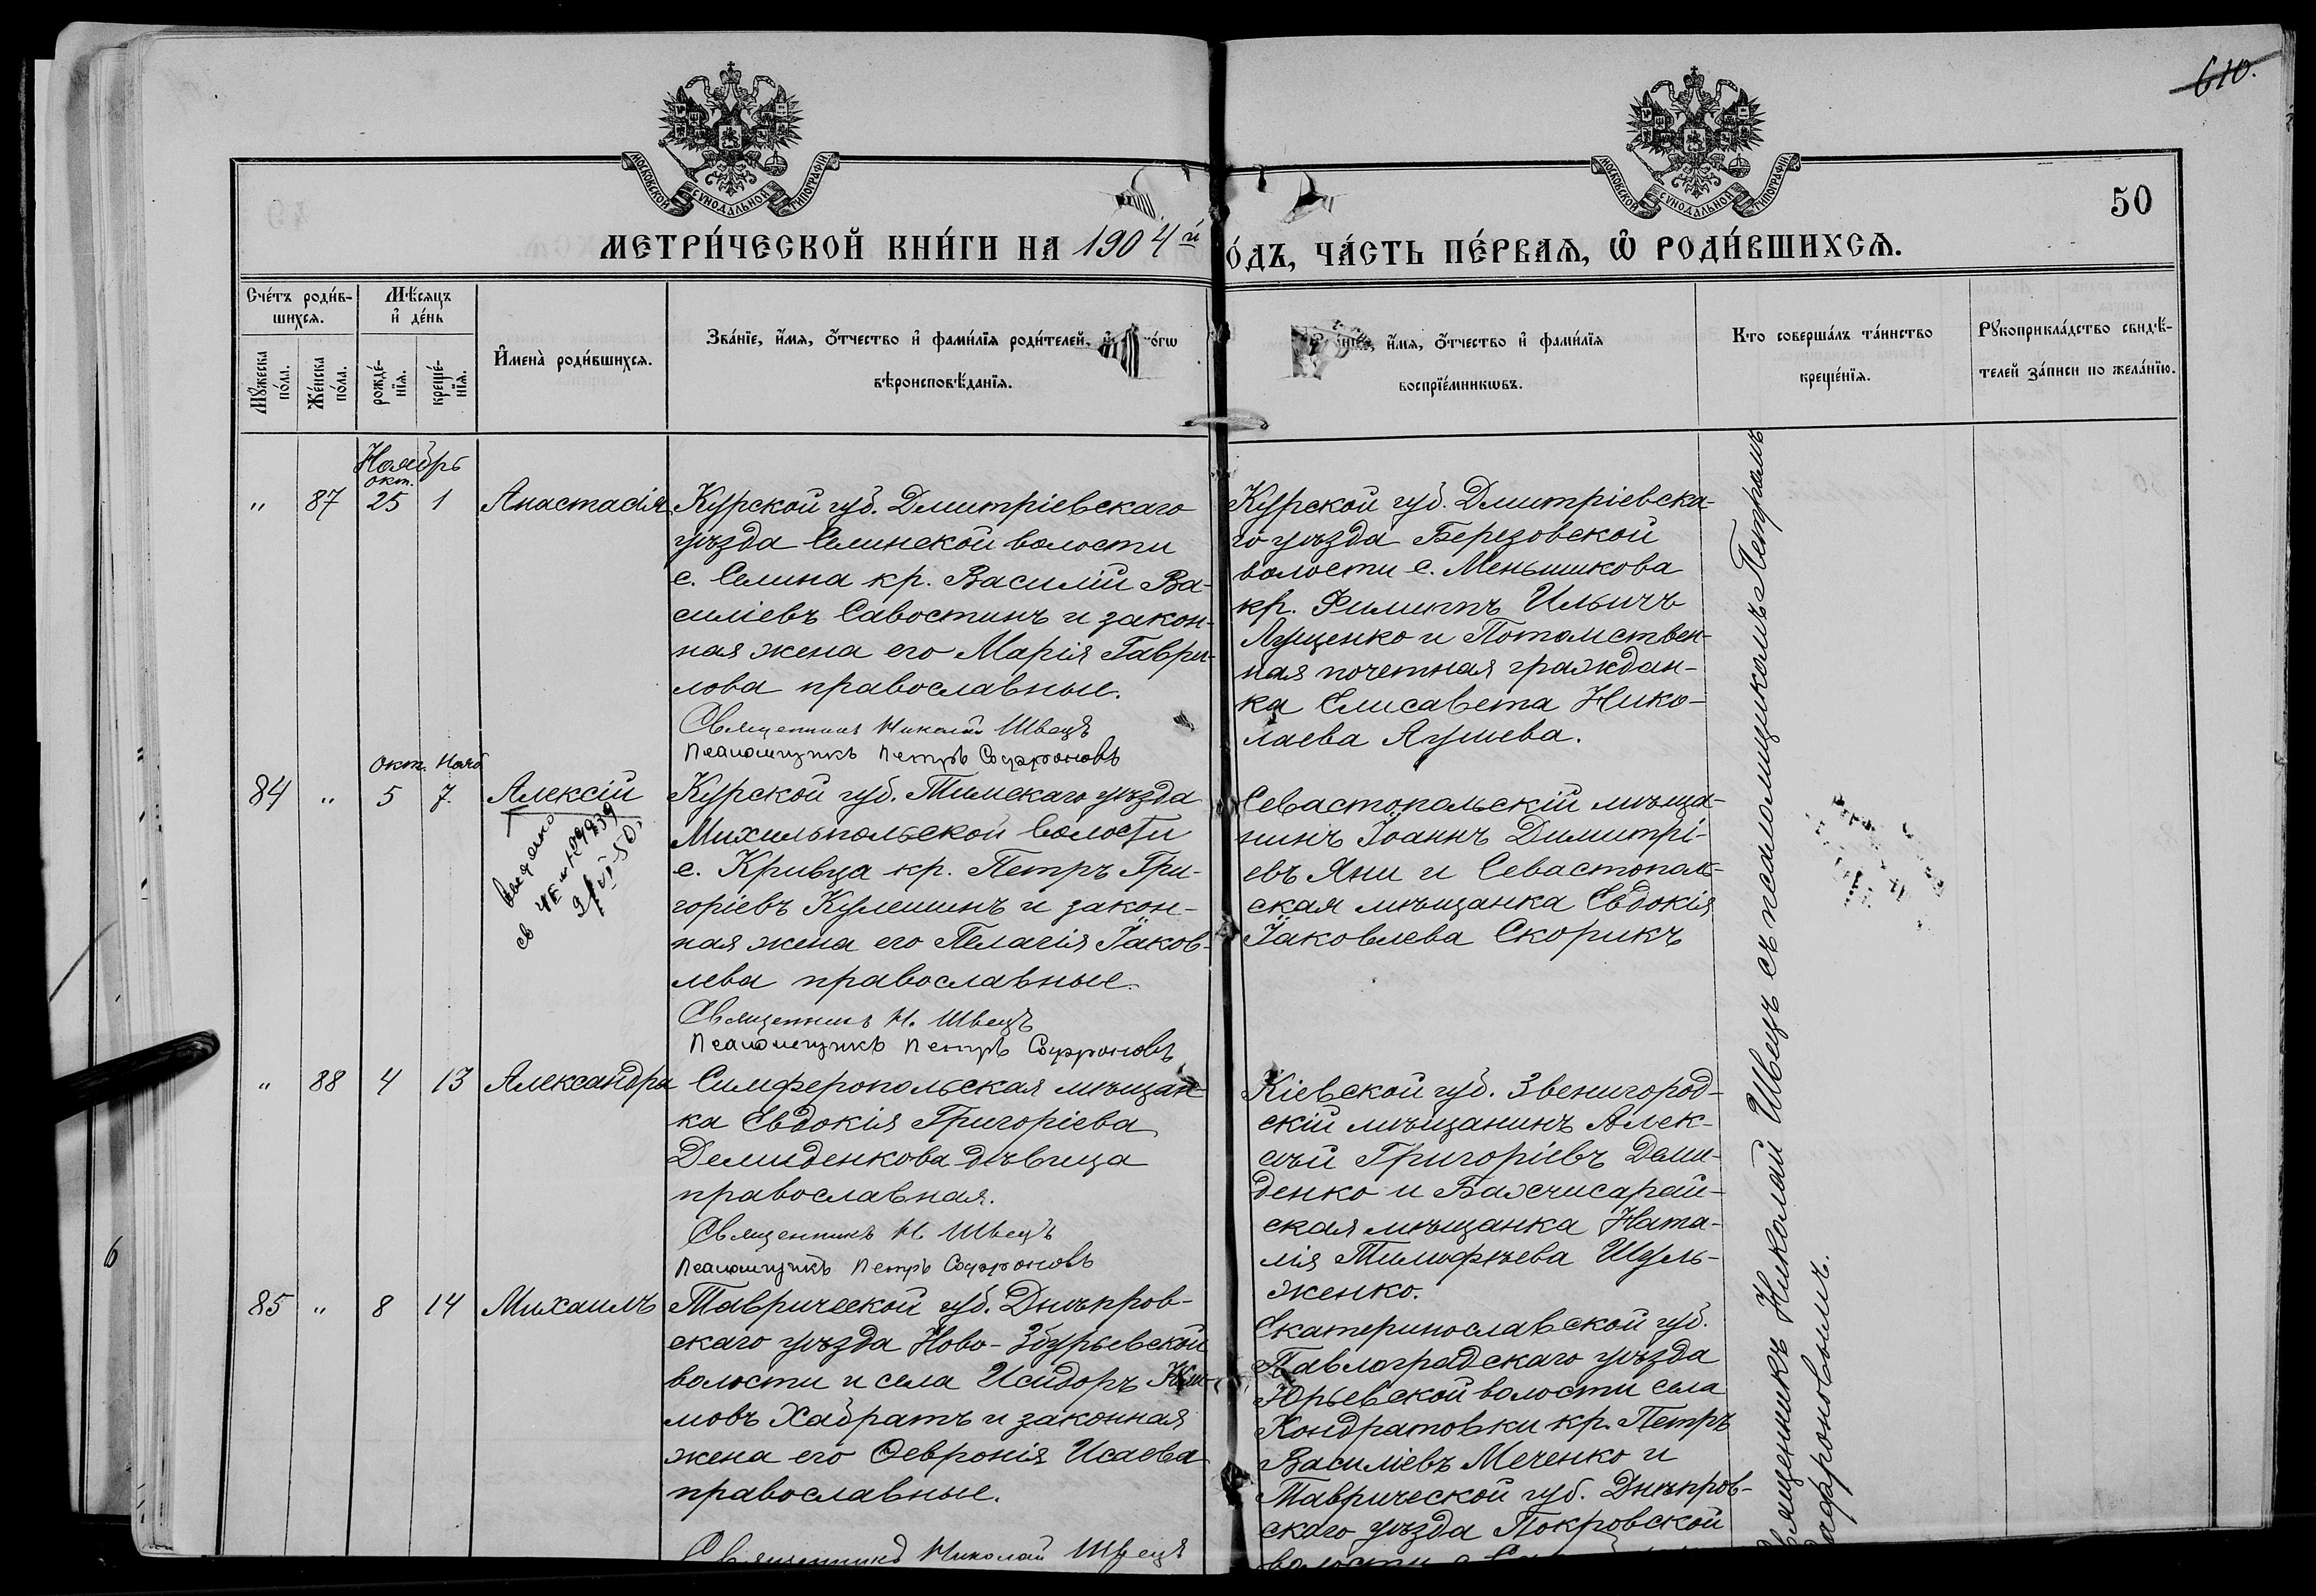 610.
МОСКОВСКОЙ СУНОДАЛЬНОЙ ТИПОГРАФІИ
МОСКОВСКОЙ СУНОДАЛЬНОЙ ТИПОГРАФІИ
50
МЕТРИ́ЧЕСКОЙ КНИ́ГИ НА 1904й
О́ДЪ, ЧА́СТЬ ПЕ́РВАЯ, Ѡ҆ РОДИ́ВШИХСЯ.
Сче́тъ роди́в-
шихся.
Мѣ́сяцъ
и҆ де́нь
Мꙋ́жеска
по́ла.
Же́нска
по́ла.
рожде́-
нїя.
креще́-
нїя.
И҆мена̀ роди́вшихся.
Зва́нїе, и҆́мя, ѻ҆́тчество и҆ фами́лїя роди́телей, и҆ о́гѡ
вѣроисповѣ́данїя.
и҆́мя, ѻ҆́тчество и҆ фами́лїя
воспрїе́мникѡвъ.
Кто соверша́лъ та́инство
креще́нїя.
Рꙋкоприкла́дство свидѣ́-
телей за́писи по жела́нїю.
Ноябрь
окт.
" 87 25 1 Анастасія
Курской губ. Дмитріевскаго
уѣзда Селинской волости
с. Селина кр. Василій Ва-
силіевъ Савостинъ и закон-
ная жена его Марія Гаври-
лова православные.
Священникъ Николай Швецъ
Псаломщикъ Петръ Софроновъ
Курской губ. Дмитріевска-
го уѣзда Березовской
волости с. Меньшикова
кр. Филиппъ Ильичъ
Ященко и Потомствен-
ная почетная граждан-
ка Елисавета Нико-
лаева Ягушева.
Окт. Нояб
84 " 5 7. Алексій
Курской губ. Тимскаго уѣзда
Михильпольской волости
с. Кривца кр. Петръ Гри-
горіевъ Кулешинъ и закон-
ная жена его Пелагія Іаков-
лева православные.
Священникъ Н. Швецъ
Псаломщикъ Петръ Софроновъ
Севастопольскій мѣща-
нинъ Іоаннъ Димитрі-
евъ Яни и Севастополь-
ская мѣщанка Евдокія
Іаковлева Скорикъ
" 88 4 13 Александра
Симферопольская мѣщан-
ка Евдокія Григоріева
Демиденкова дѣвица
православная.
Священникъ Н. Швецъ
Псаломщикъ Петръ Софроновъ
Кіевской губ. Звенигород-
скій мѣщанинъ Алек-
сѣй Григоріевъ Деми-
денко и Бахчисарай-
ская мѣщанка Ната-
лія Тимофѣева Шуль-
женко.
85 " 8 14 Михаилъ
Таврической губ. Днѣпров-
скаго уѣзда Ново-Збурьевской
волости и села Исидоръ
мовъ Хабратъ и законная
жена его Ѳевронія Исаева
православные.
Священникъ Николай Швецъ
Екатеринославской губ.
Павлоградскаго уѣзда
Юрьевской волости села
Кондратовки кр. Петръ
Василіевъ Меченко и
Таврической губ. Днѣпров-
скаго уѣзда Покровской
волости с.
Священникъ Николай Швецъ съ псаломщикомъ Петромъ
Софроновымъ.
6